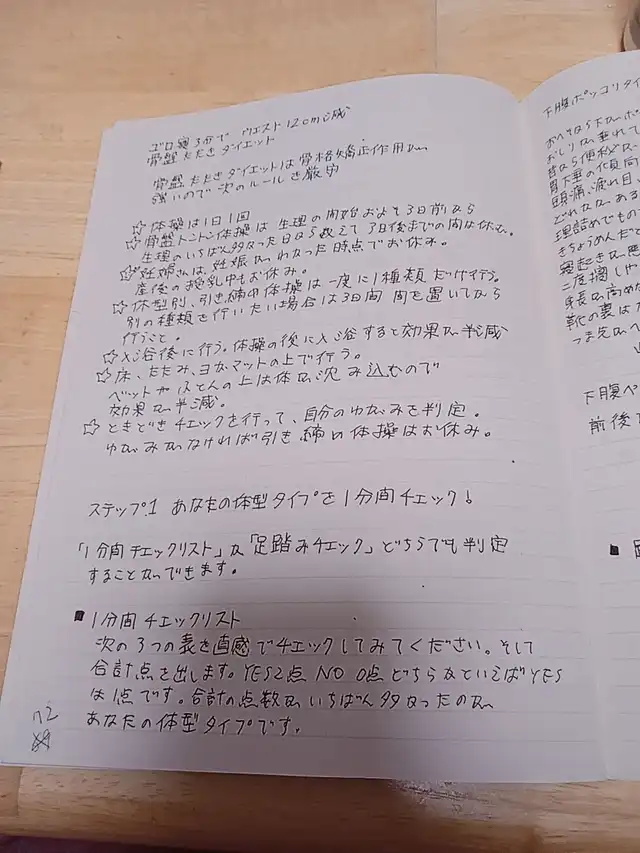 ゴロ寝3分で ウエスト12cm減
骨盤たたきダイエット
骨盤たたきダイエットは骨格矯正作用が
強いので次のルールを厳守
☆体操は1日1回
☆骨盤トントン体操は生理の開始およそ3日前なら
生理のいちばん多かった日から数えて3日後までの間は休む。
☆妊婦さんは、妊娠がわかった時点でお休み。
産後の授乳中もお休み。
☆体型別、引き締め体操は一度に1種類だけ行う。
別の種類を行いたい場合は3日間 間を置いてから
行うこと。
☆入浴後に行う。体操の後に入浴すると効果が半減
☆床、たたみ、ヨガマットの上で行う。
ベットやふとんの上は体が沈み込むので
効果が半減。
☆ときどきチェックを行って、自分のゆがみを判定。
ゆがみがなければ引き締め体操はお休み。
ステップ1 あなたの体型タイプを1分間チェック!
「1分間チェックリスト」か「足踏みチェック」どちらでも判定
することができます。
■1分間チェックリスト
次の3つの表を直感でチェックしてみてください。そして
合計点を出します。YES2点 NO 0点 どちらかといえばYES
は1点です。合計の点数がいちばん多かったのが
あなたの体型タイプです。
下腹ポッコリタイ
おしりが垂れて
頭痛、疲れ目、
理詰めでもの
きちょうめんだと
寝起きが悪
靴の裏は
つま先が
下腹ペ
前後
■